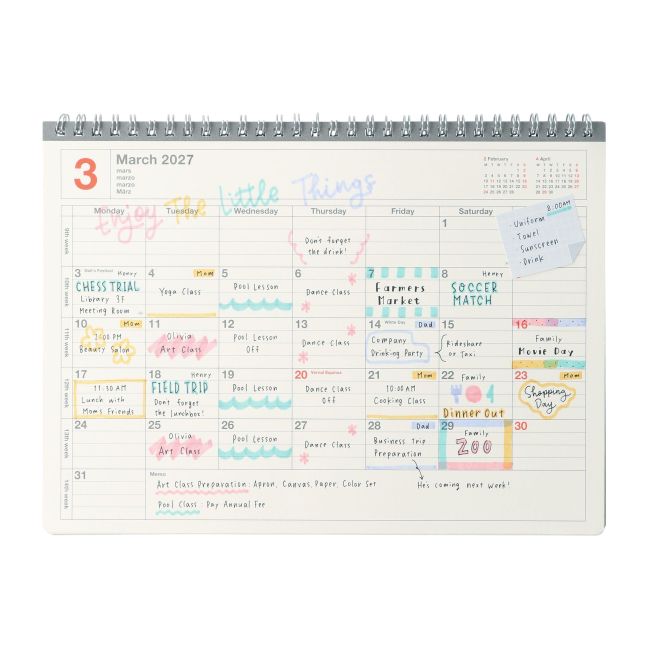 3
March 2027
mars
marzo
marzo
März
2 February
4 April
Enjoy The Little Things
Monday
Tuesday
Wednesday
Thursday
Friday
Saturday
8:00AM
· Uniform
Towel
Sunscreen
· Drink
9th week
Don't forget
the drink!
1
10th week
3
Henry
CHESS TRIAL
Library 3F
Meeting Room
4
Mom
Yoga Class
5
Pool Lesson
6
Dance Class
7
Farmers
Market
8
Henry
SOCCER
MATCH
11th week
10
Mom
2:00 PM
Beauty Salon
11
Olivia
Art Class
12
Pool Lesson
Off
13
Dance Class
14
White Day
Dad
Company
Drinking Party
15
Rideshare
or Taxi.
16
Family
Movie Day
12th week
17
11:30 AM
Lunch with
Mom's Friends
18
Henry
FIELD TRIP
Don't forget
the lunchbox!
19
Pool Lesson
20
Vernal Equinox
Dance Class
Off
21
Mom
10:00 AM
Cooking Class
22
Family
Dinner Out
23
Mom
Shopping
Day
13th week
24
25
Olivia
Art Class
26
Pool Lesson
27
Dance Class
28
Dad
Business Trip
Preparation
29
Family
ZOO
30
14th week
31
Memo
Art Class Preparation : Apron, Canvas, Paper, Color Set
Pool Class : Pay Annual Fee
He's coming next week!